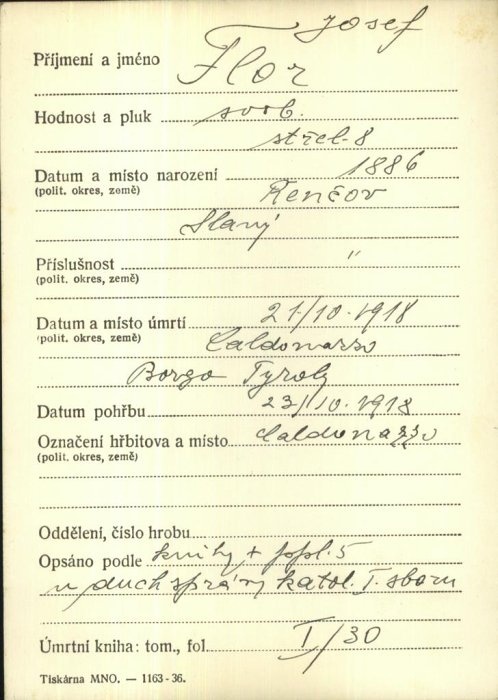 Josef
Příjmení a jméno Flor
Hodnost a pluk svob.
střel. 8
Datum a místo narození 1886
(polit. okres, země) Renčov
Slaný
Příslušnost "
(polit. okres, země)
Datum a místo úmrtí 21/10.1918
(polit. okres, země) Caldonazzo
Borgo Tyroly
Datum pohřbu 23/10.1918
Označení hřbitova a místo Caldonazzo
(polit. okres, země)
Oddělení, číslo hrobu
Opsáno podle knihy + 5
u duch správy katol. I. sboru
Úmrtní kniha: tom., fol. I/30
Tiskárna MNO. — 1163-36.